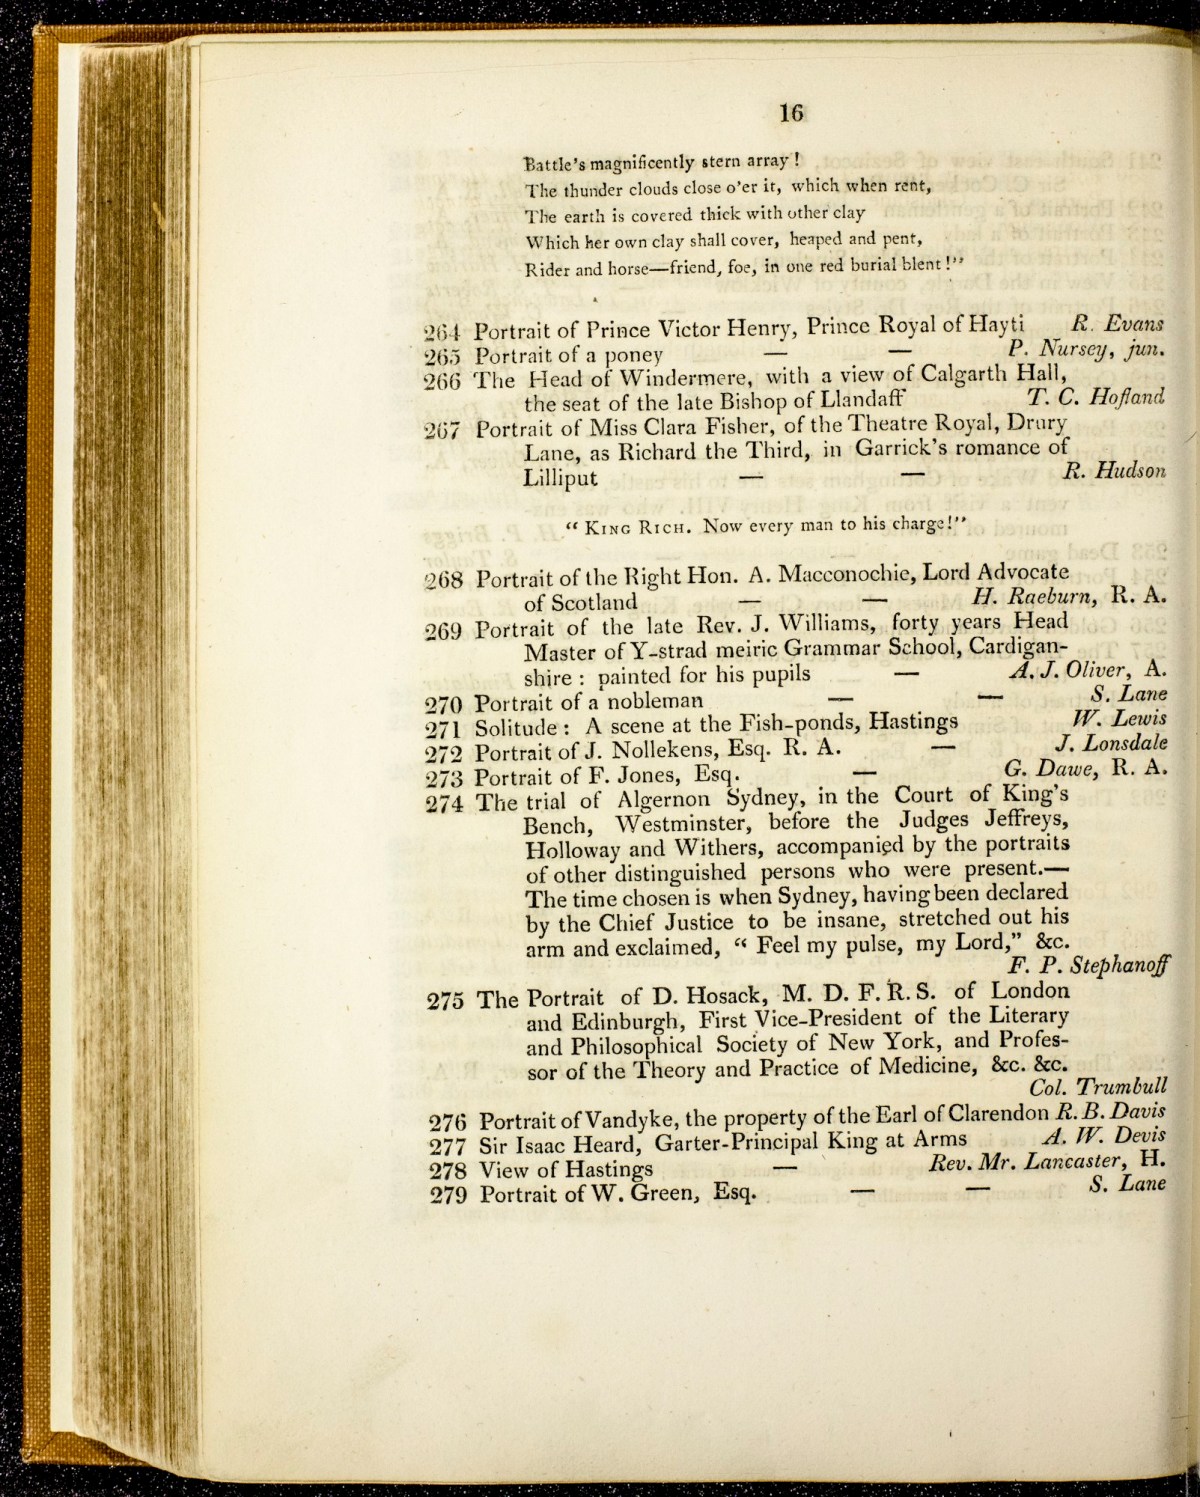 16
Battle's magnificently stern array !
The thunder clouds close o'er it, which when rent,
The earth is covered thick with other clay
Which her own clay shall cover, heaped and pent,
Rider and horse—friend, foe, in one red burial blent !"
264 Portrait of Prince Victor Henry, Prince Royal of Hayti R. Evans
265 Portrait of a poney — — P. Nursey, jun.
266 The Head of Windermere, with a view of Calgarth Hall,
the seat of the late Bishop of Llandaff T. C. Hofland
267 Portrait of Miss Clara Fisher, of the Theatre Royal, Drury
Lane, as Richard the Third, in Garrick's romance of
Lilliput — — R. Hudson
" KING RICH. Now every man to his charge!"
268 Portrait of the Right Hon. A. Macconochie, Lord Advocate
of Scotland — — H. Raeburn, R. A.
269 Portrait of the late Rev. J. Williams, forty years Head
Master of Y-strad meiric Grammar School, Cardigan-
shire : painted for his pupils — A. J. Oliver, A.
270 Portrait of a nobleman — — S. Lane
271 Solitude : A scene at the Fish-ponds, Hastings W. Lewis
272 Portrait of J. Nollekens, Esq. R. A. — J. Lonsdale
273 Portrait of F. Jones, Esq. — G. Dawe, R. A.
274 The trial of Algernon Sydney, in the Court of King's
Bench, Westminster, before the Judges Jeffreys,
Holloway and Withers, accompanied by the portraits
of other distinguished persons who were present.—
The time chosen is when Sydney, having been declared
by the Chief Justice to be insane, stretched out his
arm and exclaimed, " Feel my pulse, my Lord," &c.
F. P. Stephanoff
275 The Portrait of D. Hosack, M. D. F. R. S. of London
and Edinburgh, First Vice-President of the Literary
and Philosophical Society of New York, and Profes-
sor of the Theory and Practice of Medicine, &c. &c.
Col. Trumbull
276 Portrait of Vandyke, the property of the Earl of Clarendon R. B. Davis
277 Sir Isaac Heard, Garter-Principal King at Arms A. W. Devis
278 View of Hastings — Rev. Mr. Lancaster, H.
279 Portrait of W. Green, Esq. — — S. Lane